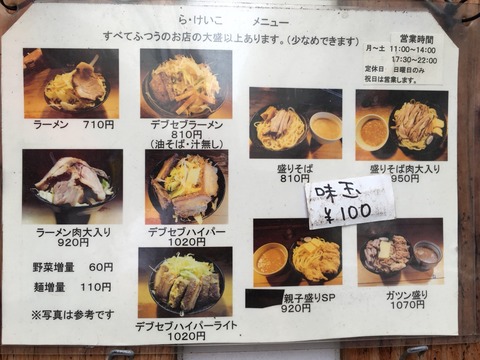 ら・けいこ メニュー
すべてふつうのお店の大盛以上あります。(少なめできます)
営業時間
月~土 11:00~14:00
17:30~22:00
定休日 日曜日のみ
祝日は営業します。
ラーメン 710円
デブセブラーメン
810円
(油そば・汁無し)
盛りそば
810円
盛りそば肉大入り
950円
味玉
¥100
ラーメン肉大入り
920円
デブセブハイパー
1020円
野菜増量 60円
麺増量 110円
※写真は参考です
デブセブハイパーライト
1020円
親子盛りSP
920円
ガツン盛り
1070円